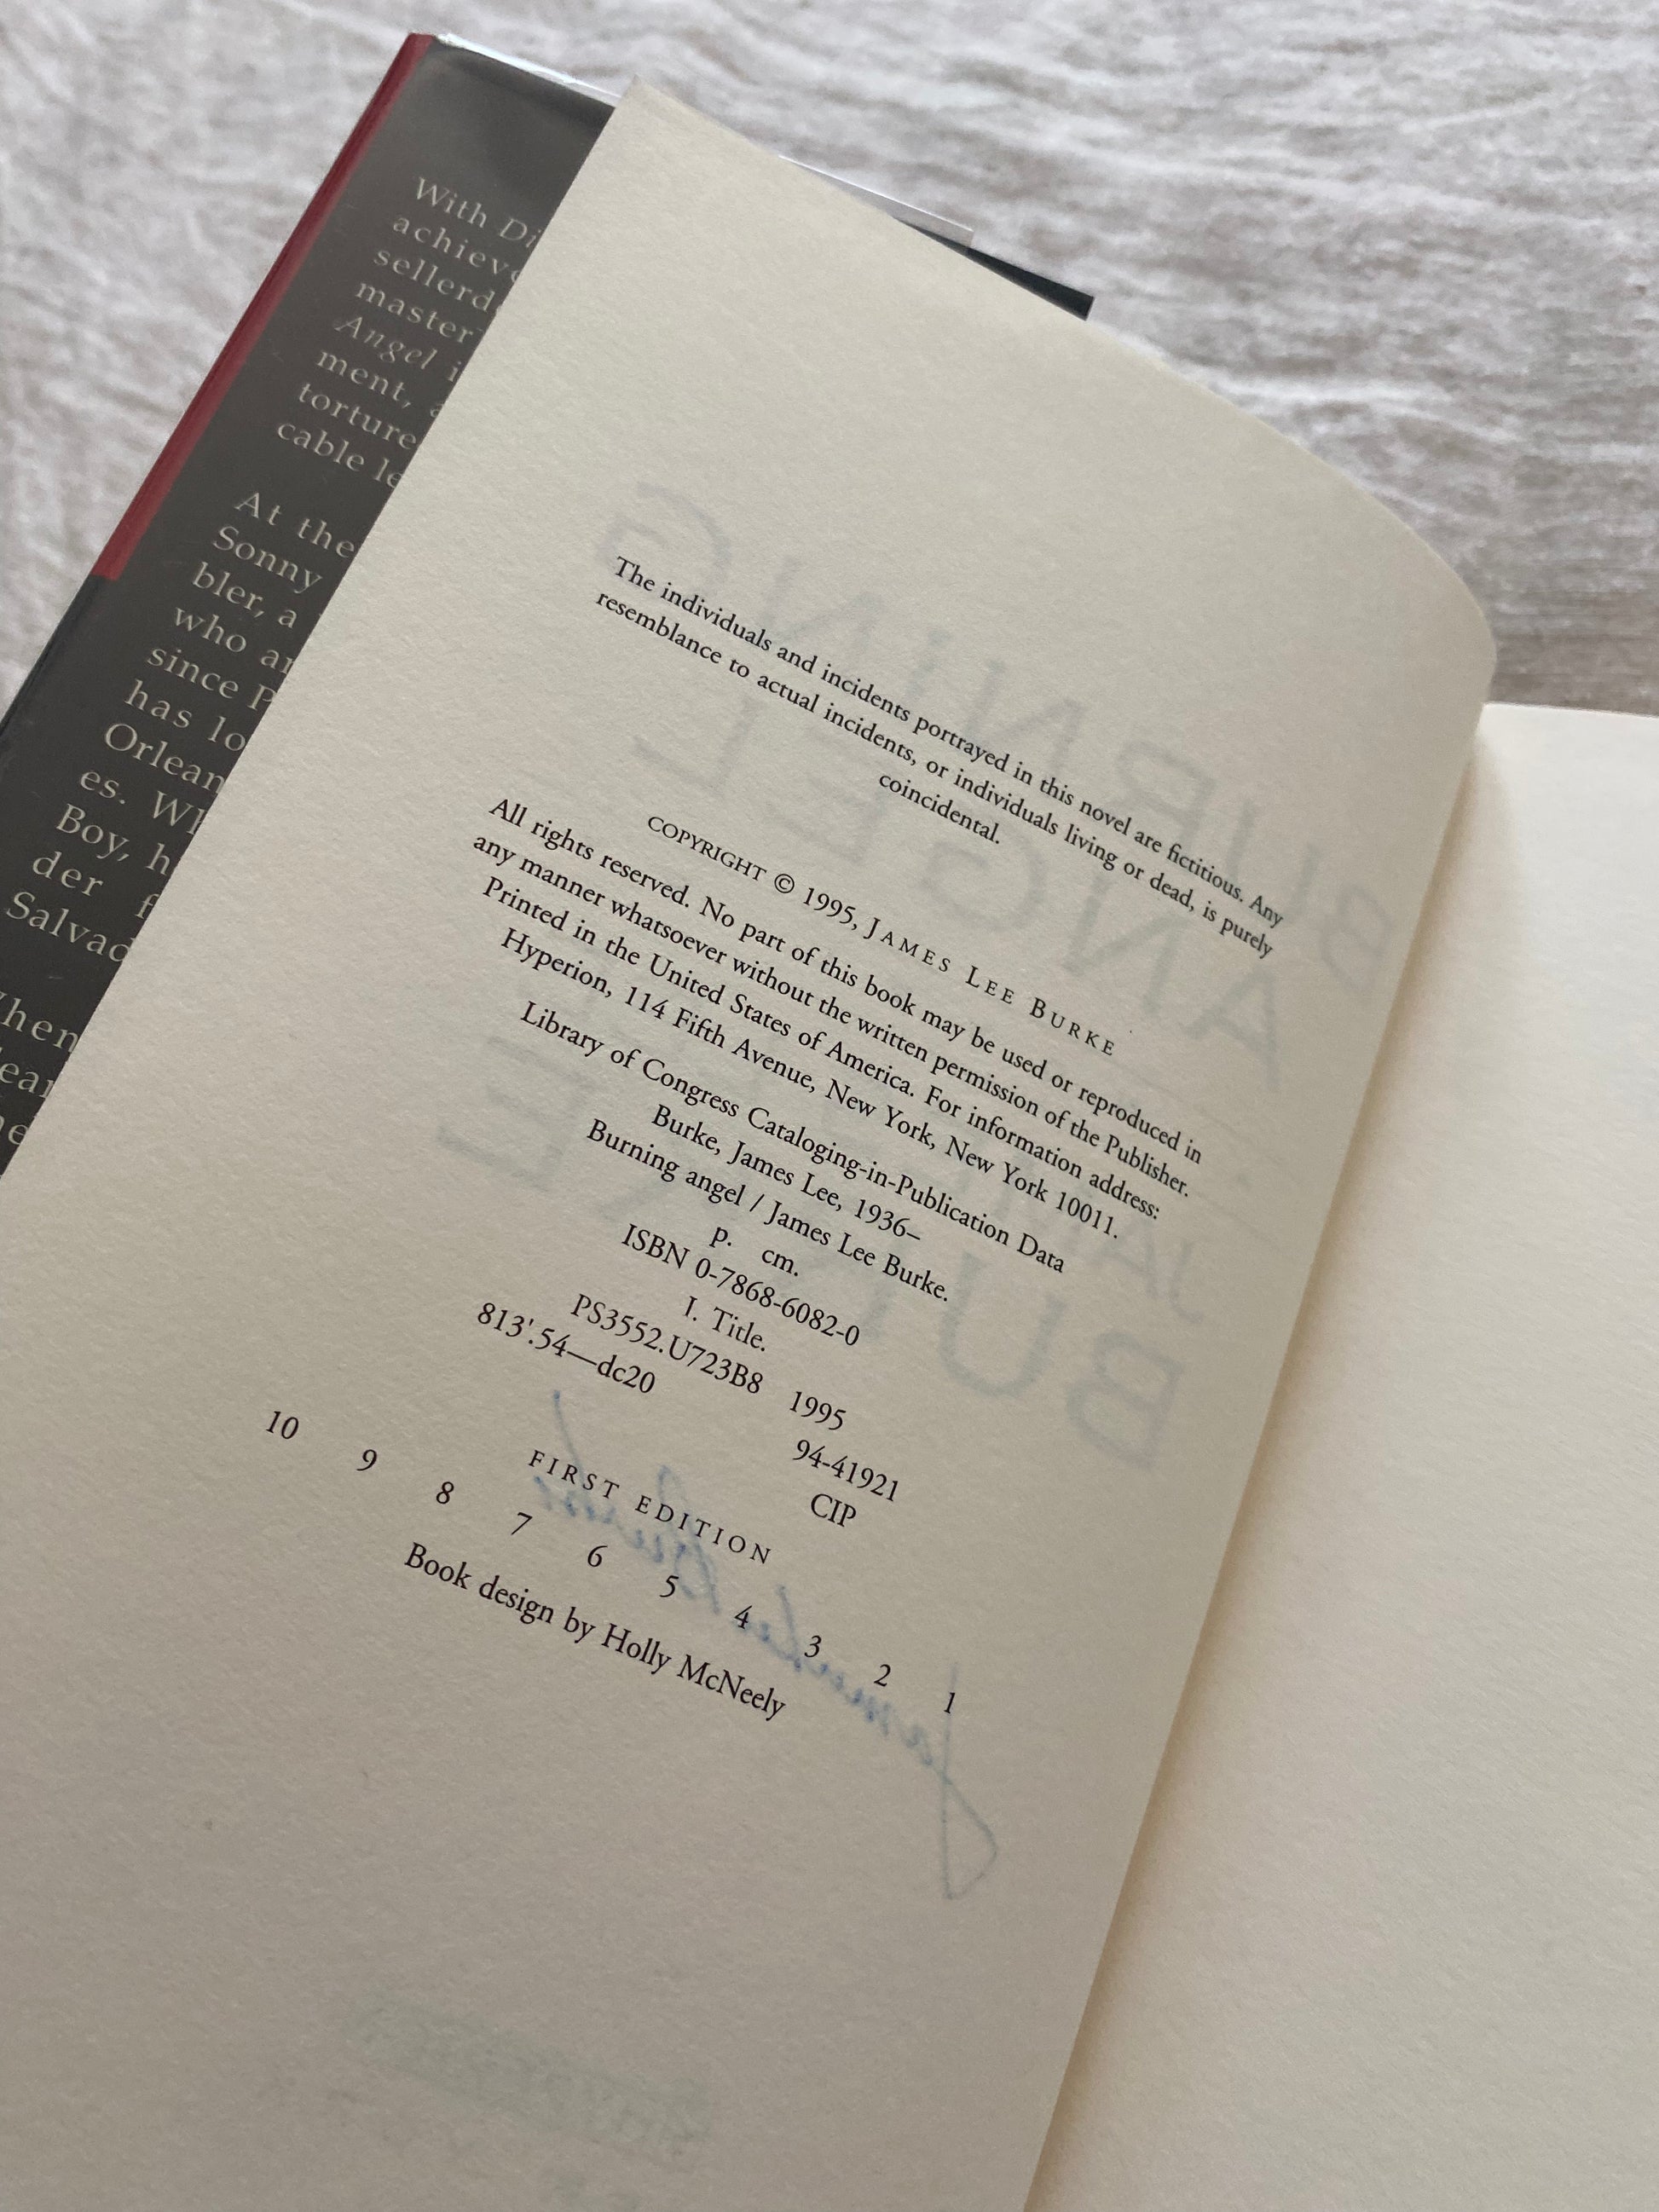 With Di
achieve
sellerd
master
Angel i
ment, a
torture
cable le
At the
Sonny
bler, a
who ar
since P
has lo
Orlean
es. Wh
Boy, h
der f
Salvad
hen
ear
he
The individuals and incidents portrayed in this novel are fictitious. Any
resemblance to actual incidents, or individuals living or dead, is purely
coincidental.
COPYRIGHT © 1995, JAMES LEE BURKE
All rights reserved. No part of this book may be used or reproduced in
any manner whatsoever without the written permission of the Publisher.
Printed in the United States of America. For information address:
Hyperion, 114 Fifth Avenue, New York, New York 10011.
Library of Congress Cataloging-in-Publication Data
Burke, James Lee, 1936–
Burning angel / James Lee Burke.
p. cm.
ISBN 0-7868-6082-0
I. Title.
PS3552.U723B8 1995
813'.54—dc20 94-41921
CIP
FIRST EDITION
10 9 8 7 6 5 4 3 2 1
Book design by Holly McNeely